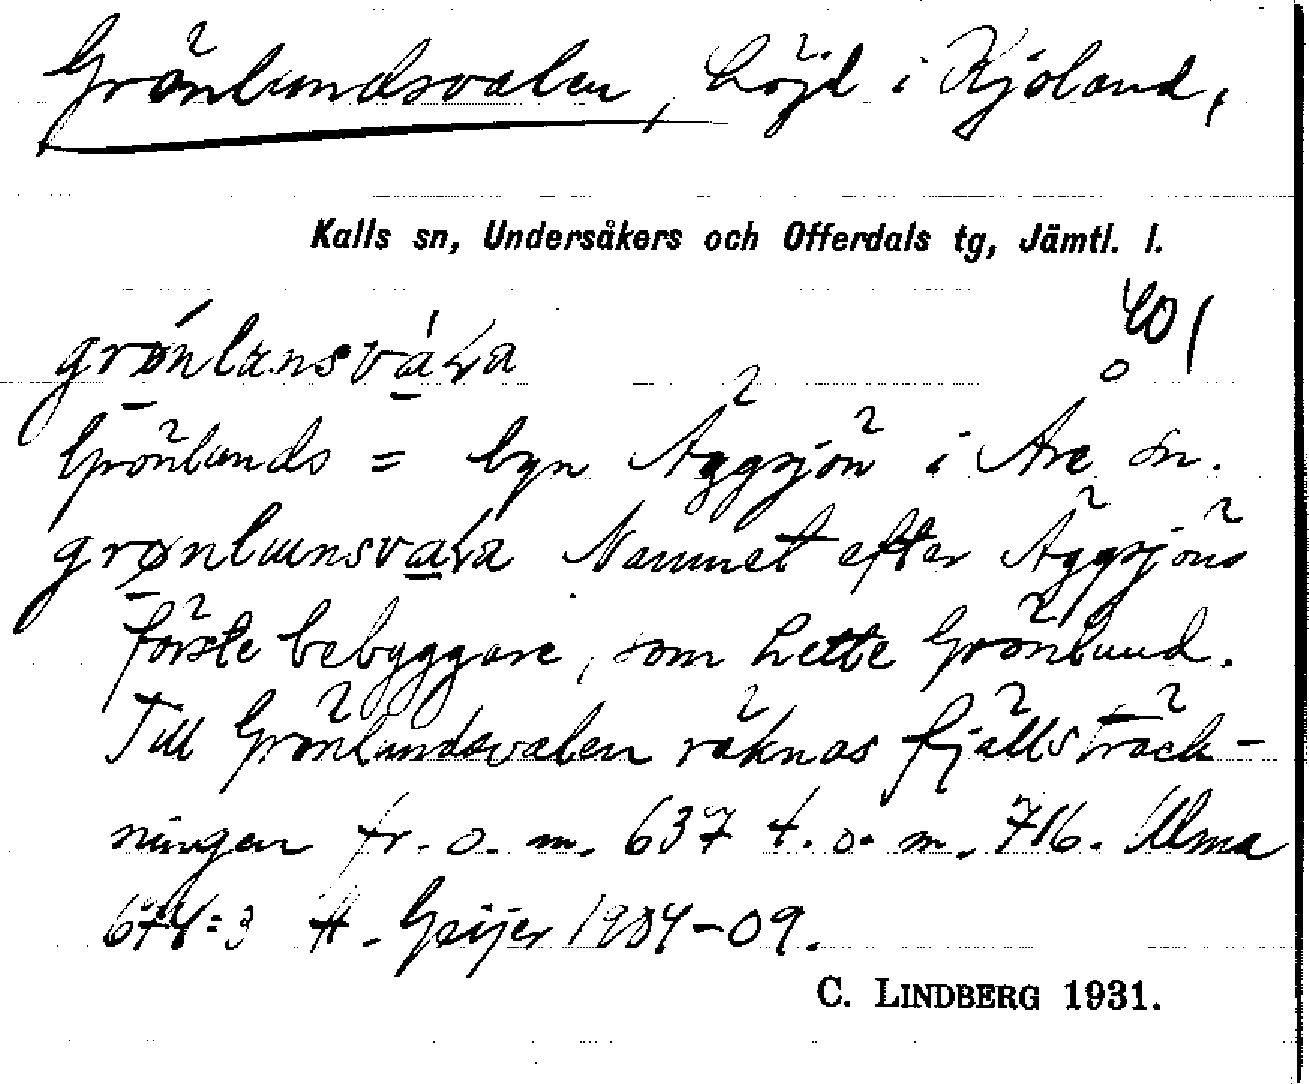 Grönlundsvalen, höjd i Kjoland,
Kalls sn, Undersåkers och Offerdals tg, Jämtl. l.
401
grønlansvála
Grönlunds = byn Äggsjön i Åre sn.
grønlunsvala Namnet efter Äggsjöns
förste bebyggare, som hette Grönlund.
Till Grönlundsvalen räknas fjällsträck-
ningen fr. o. m. 637 t. o. m. 716. Alma
674:3 H. Geijer 1904-09.
C. LINDBERG 1931.